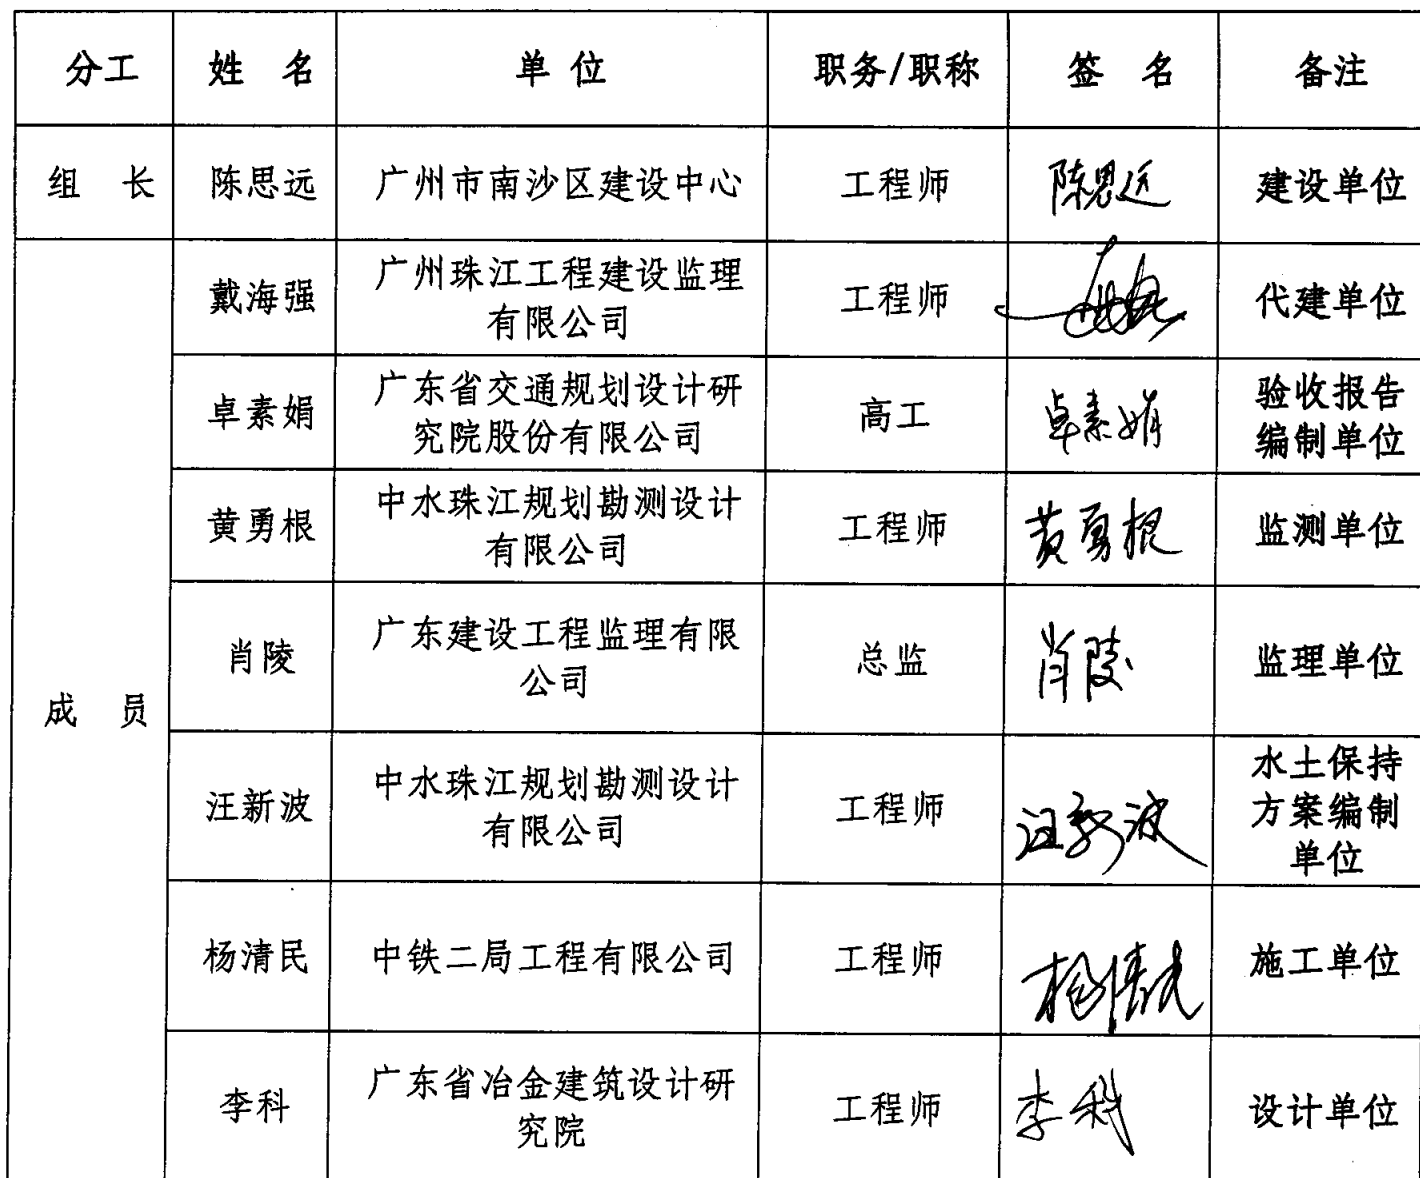 分工 姓 名 单 位 职务/职称 签 名 备注
组 长 陈思远 广州市南沙区建设中心 工程师 陈思远 建设单位
成 员
戴海强
广州珠江工程建设监理
有限公司
工程师
代建单位
卓素娟
广东省交通规划设计研
究院股份有限公司
高工
卓素娟
验收报告
编制单位
黄勇根
中水珠江规划勘测设计
有限公司
工程师
黄勇根
监测单位
肖陵
广东建设工程监理有限
公司
总监
肖陵
监理单位
汪新波
中水珠江规划勘测设计
有限公司
工程师
汪新波
水土保持
方案编制
单位
杨清民
中铁二局工程有限公司
工程师
杨清民
施工单位
李科
广东省冶金建筑设计研
究院
工程师
李科
设计单位